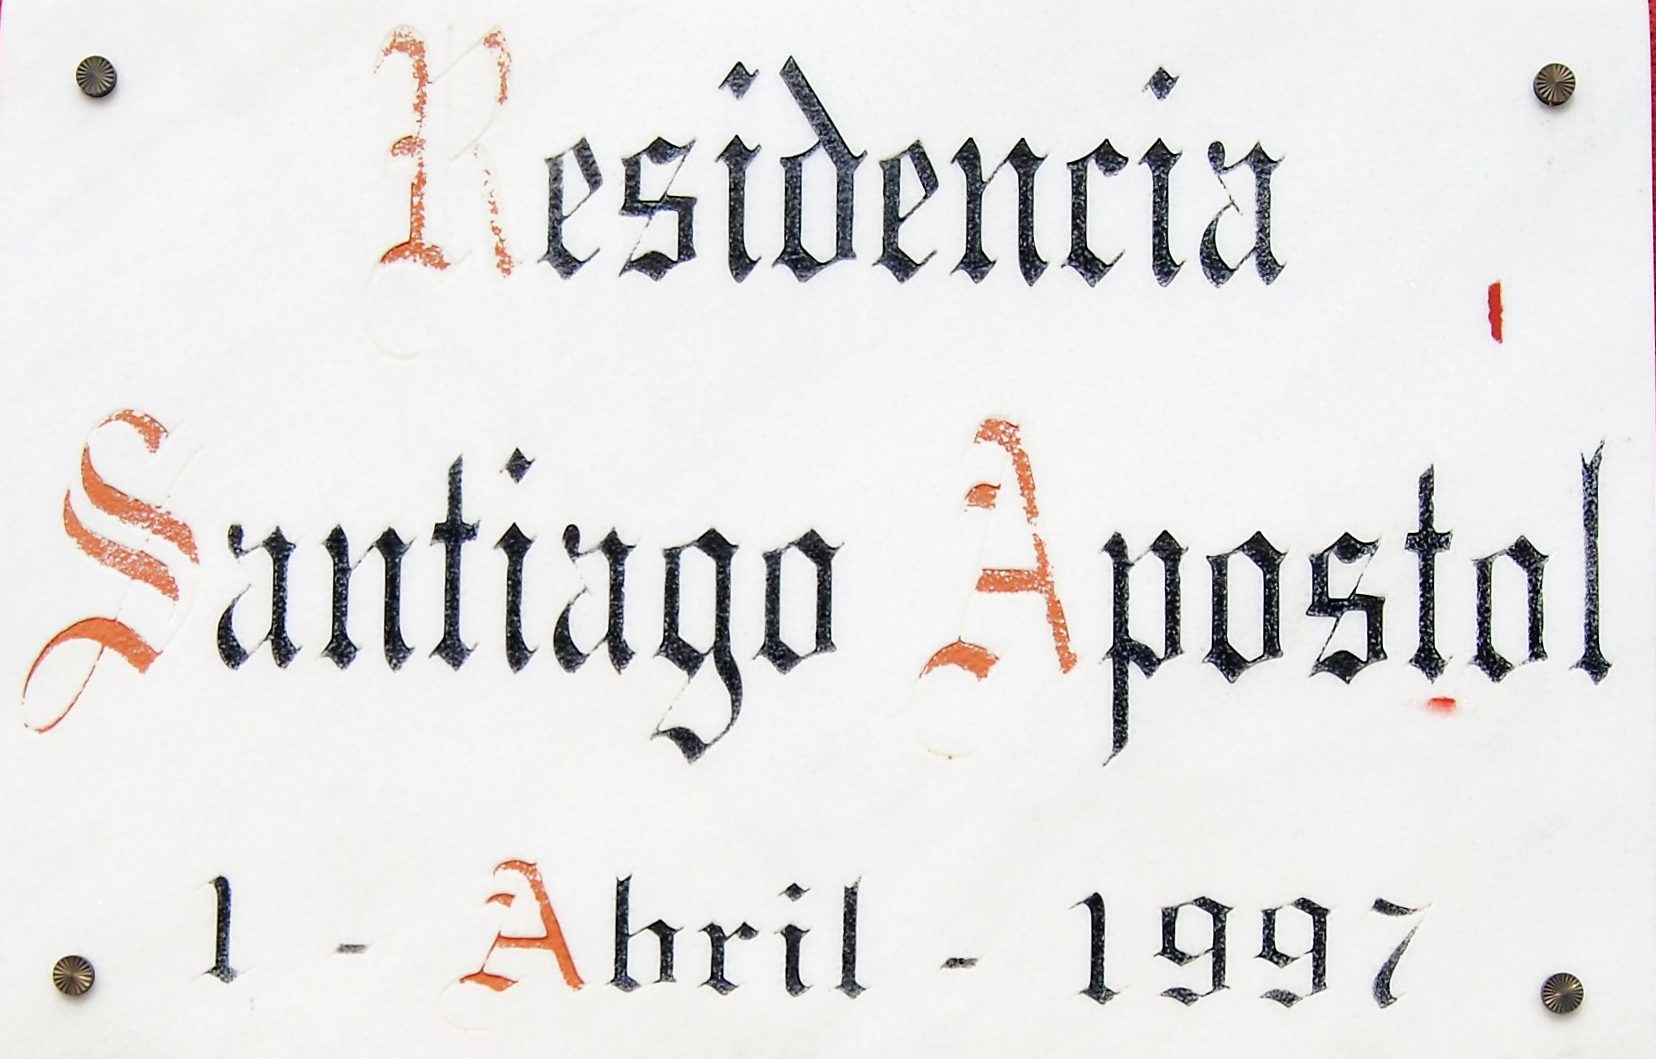 Residencia
Santiago Apostol
1 - Abril - 1997